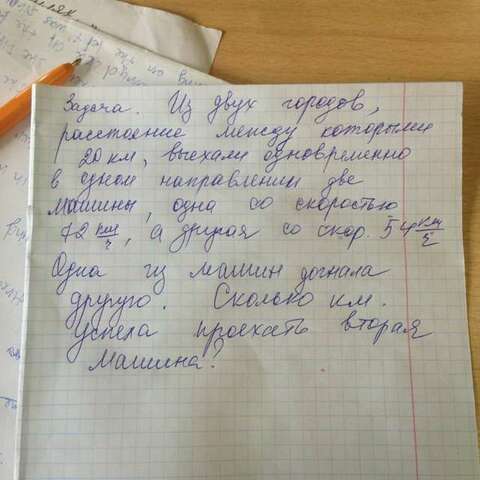 Задача. Из двух городов,
расстояние между которыми
20 км, выехали одновременно
в одном направлении две
машины, одна со скоростью
72 км/ч, а другая со скор. 54 км/ч
Одна из машин догнала
другую. Сколько км.
успела проехать вторая
машина?